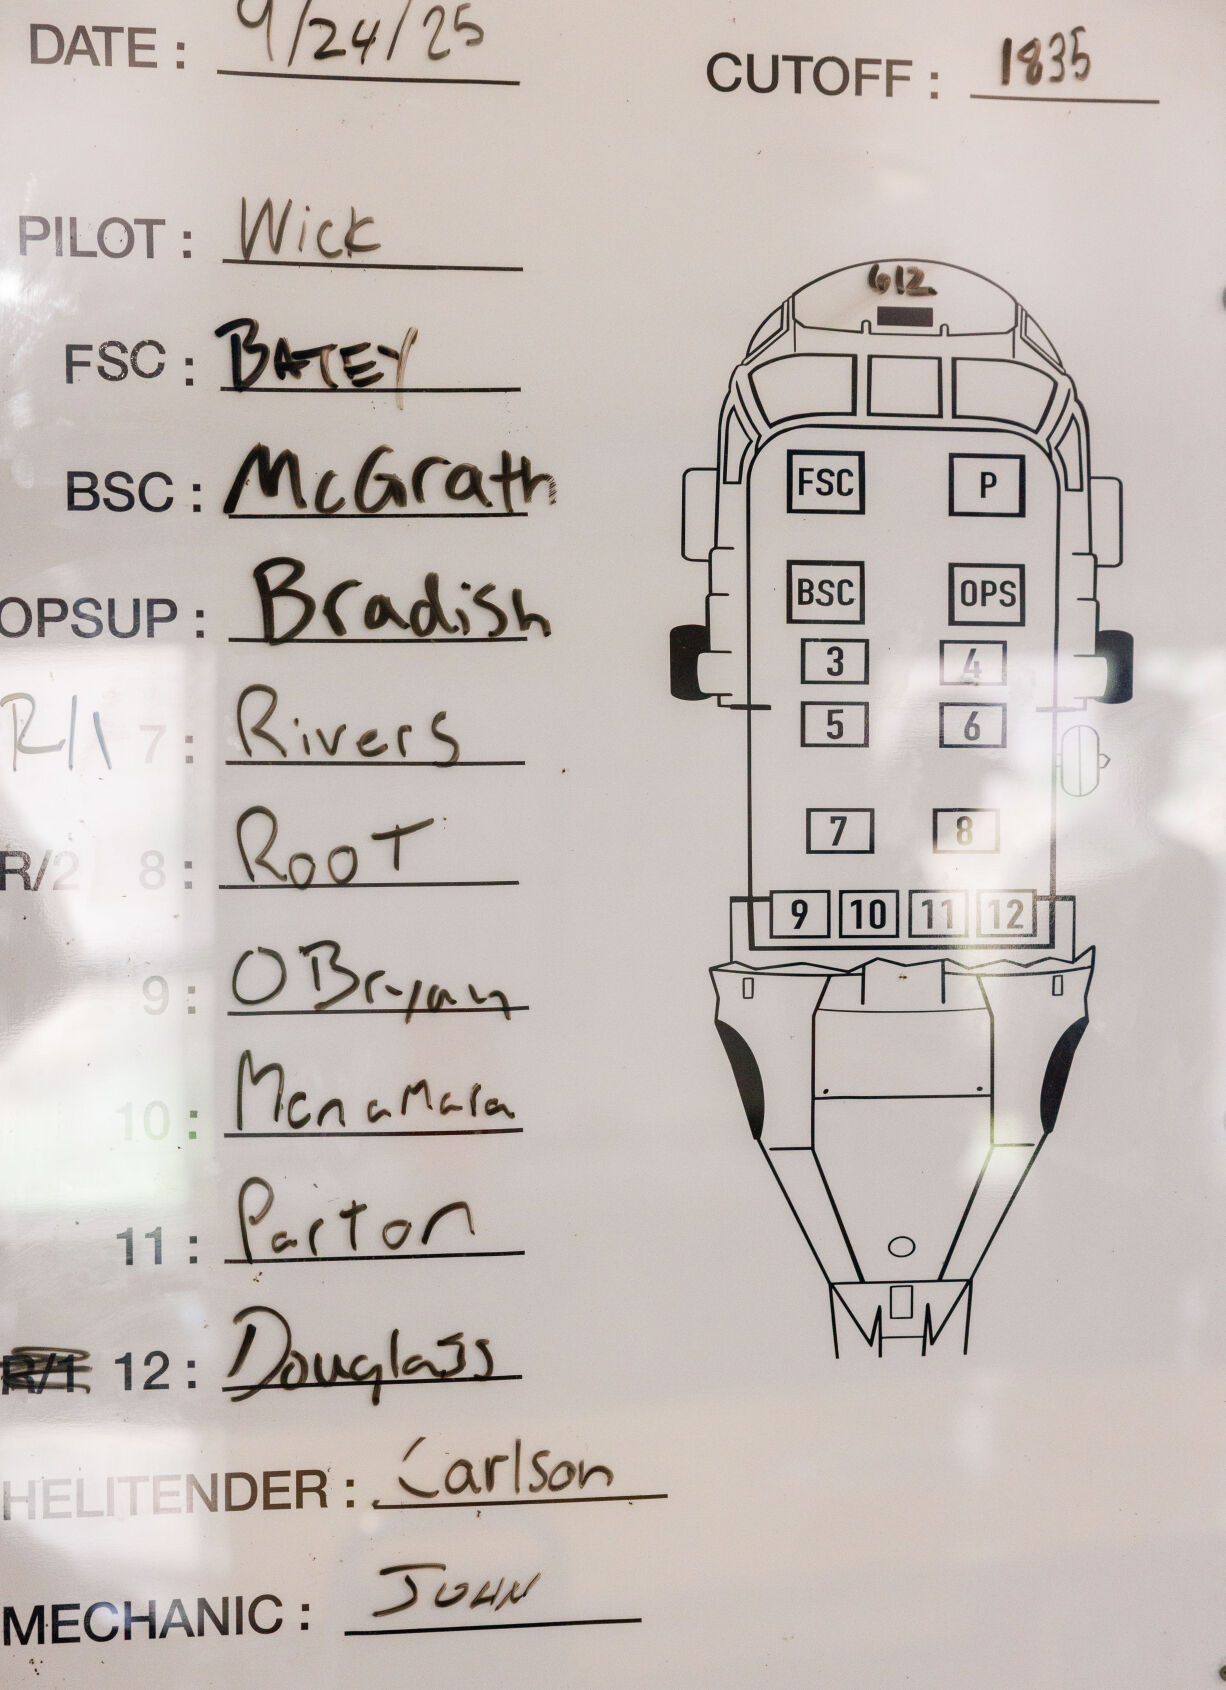 DATE: 9/24/25
CUTOFF: 1835
PILOT: Wick
FSC: BATEY
BSC: McGrath
OPSUP: Bradish
R/1 7: Rivers
R/2 8: ROOT
9: OBryan
10: McnaMara
11: Parton
R/1 12: Douglass
HELITENDER: Carlson
MECHANIC: JOHN
612
FSC P
BSC OPS
3 4
5 6
7 8
9 10 11 12